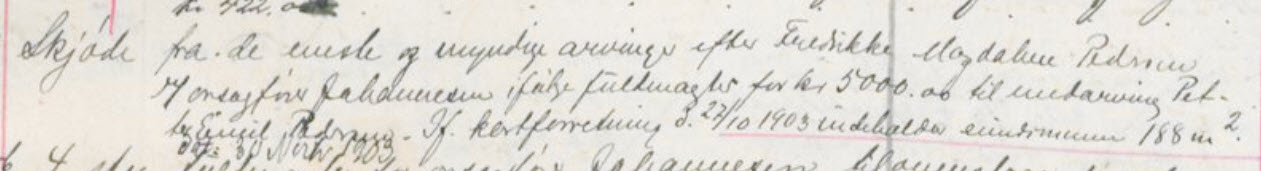 kr 422.00
Skjøde fra de eneste og myndige arvinger efter Fredrikke Magdalene Pedersen
v/ orsagfører Johannesen ifølge fuldmagter for kr 5000.00 til medarving Pet-
ter Emil Pedersen. If. kartforretning d. 27/10 1903 indeholder eiendommen 188 m².
Dat. 30 Novbr 1903.
4 Johannesen